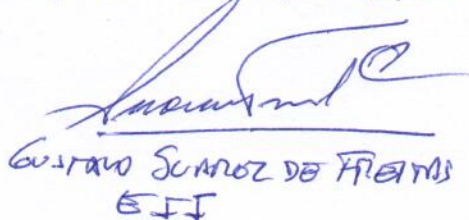 GUSTAVO SUAREZ DE FREITAS
EII